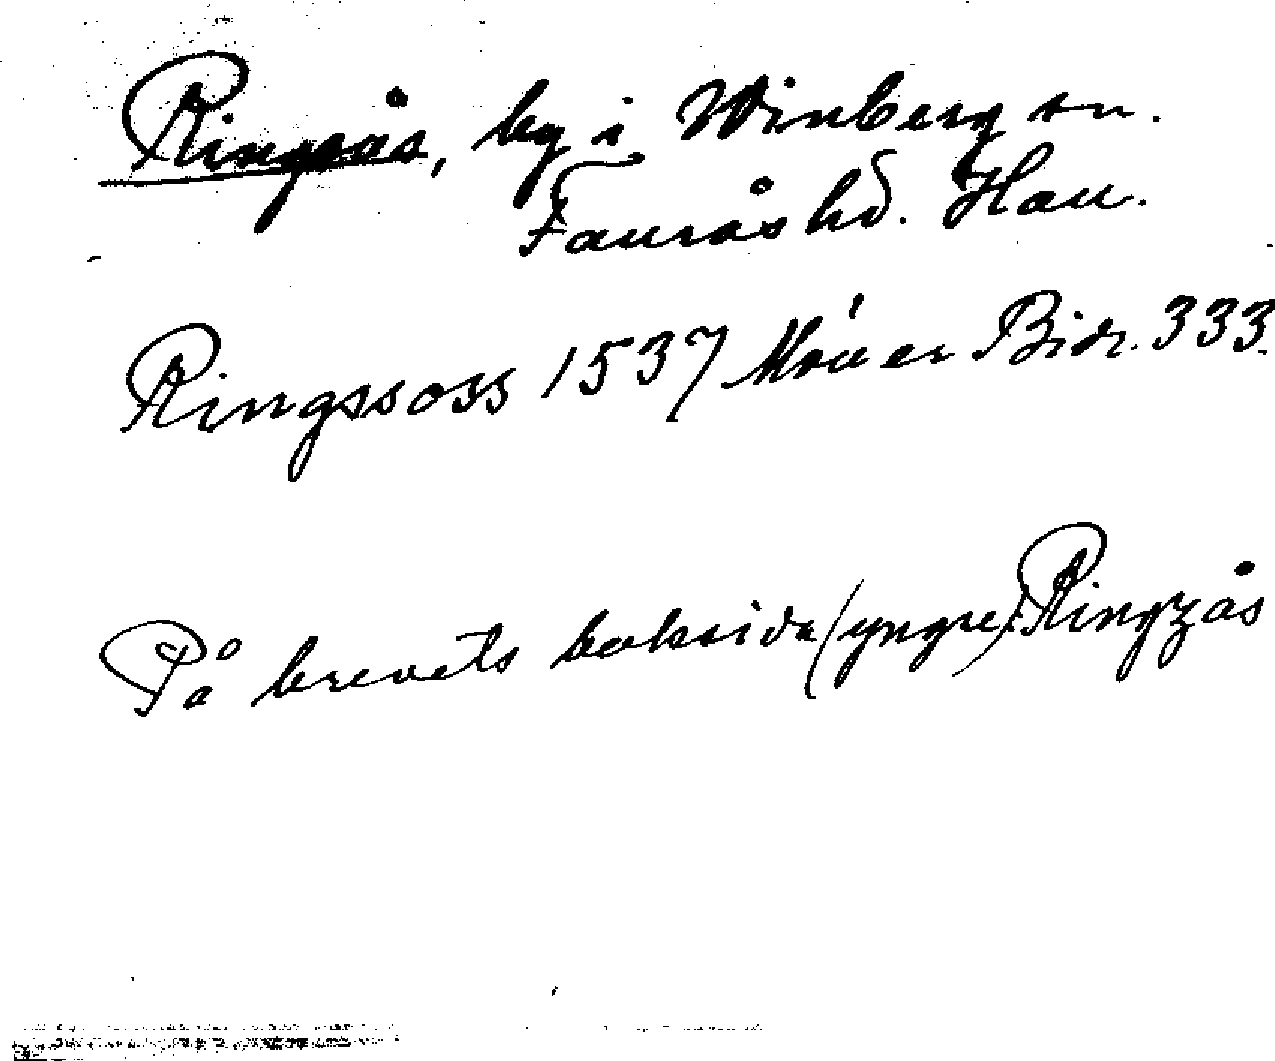 Ringsås, by i Winberg sn.
Faurås hd. Hall.
Ringssoss 1537 Bidr. 333.
På brevets baksida (yngre): Ringzås